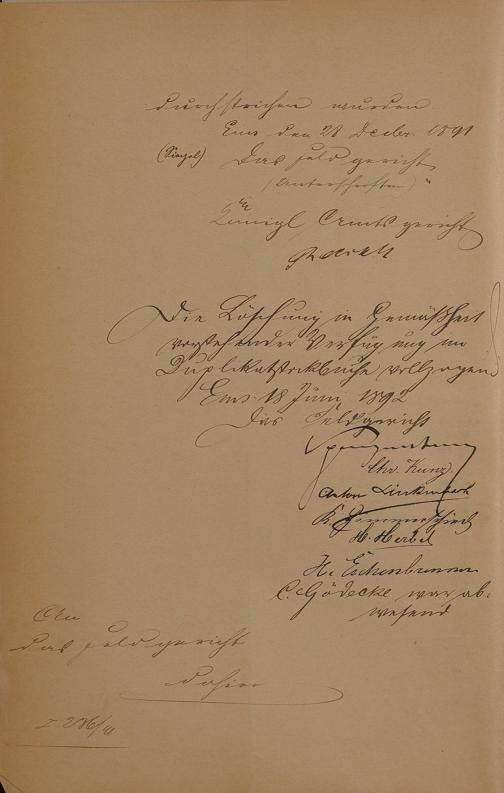 durchstrichen wurden
Ems den 28 Decbr. 1891
(Siegel) Das Feldgericht
(Unterschriften) "
Königl Amtsgericht
Die Löschung in Gemäßheit
vorstehender Verfügung im
Duplikatstockbuche vollzogen
Ems 18 Juni 1892
Das Feldgericht
Chr. Kunz.
Anton Linkenbach
K. Sommerschied
H. Herbel
H. Eschenbrenner
C. Gödecke war ab-
wesend
An
das Feldgericht
dahier